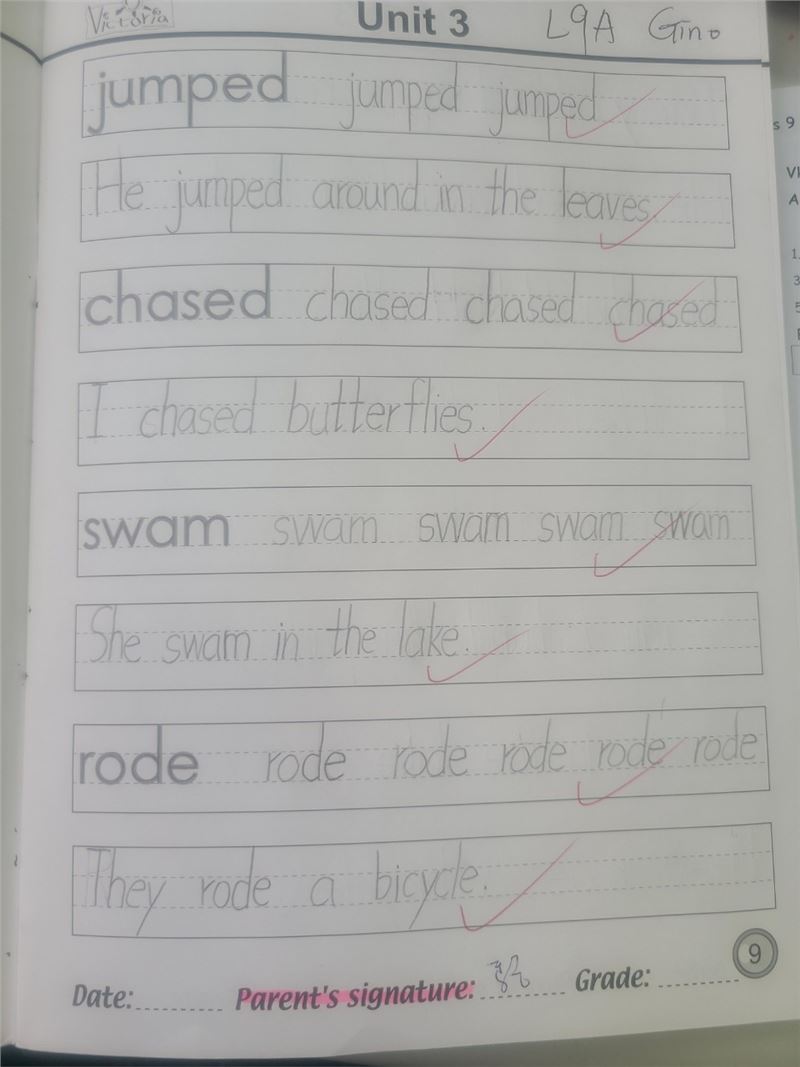 Victoria Unit 3 L9A Gino
jumped jumped jumped
He jumped around in the leaves.
chased chased chased chased
I chased butterflies.
swam swam swam swam swam
She swam in the lake.
rode rode rode rode rode rode
They rode a bicycle.
9
Date: Parent's signature: Grade: